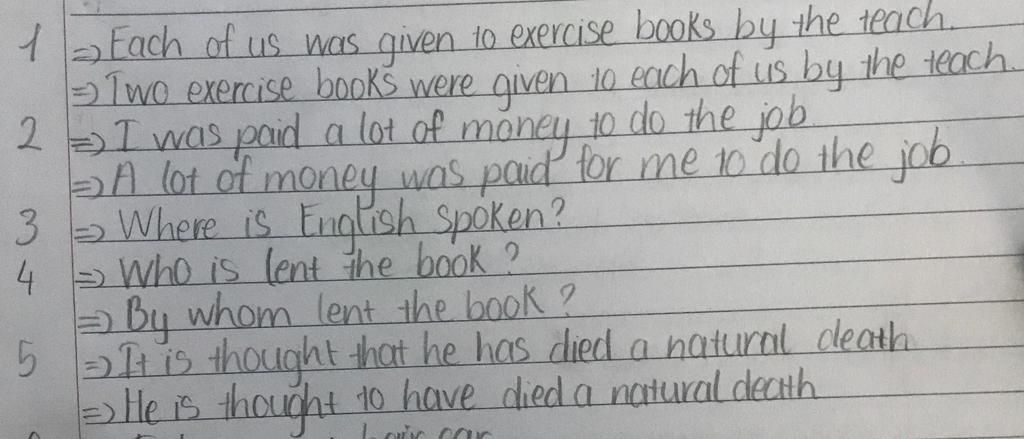 1 => Each of us was given to exercise books by the teach.
=> Two exercise books were given to each of us by the teach.
2 => I was paid a lot of money to do the job.
=> A lot of money was paid for me to do the job.
3 => Where is English spoken?
4 => Who is lent the book?
=> By whom lent the book?
5 => It is thought that he has died a natural death
=> He is thought to have died a natural death
car